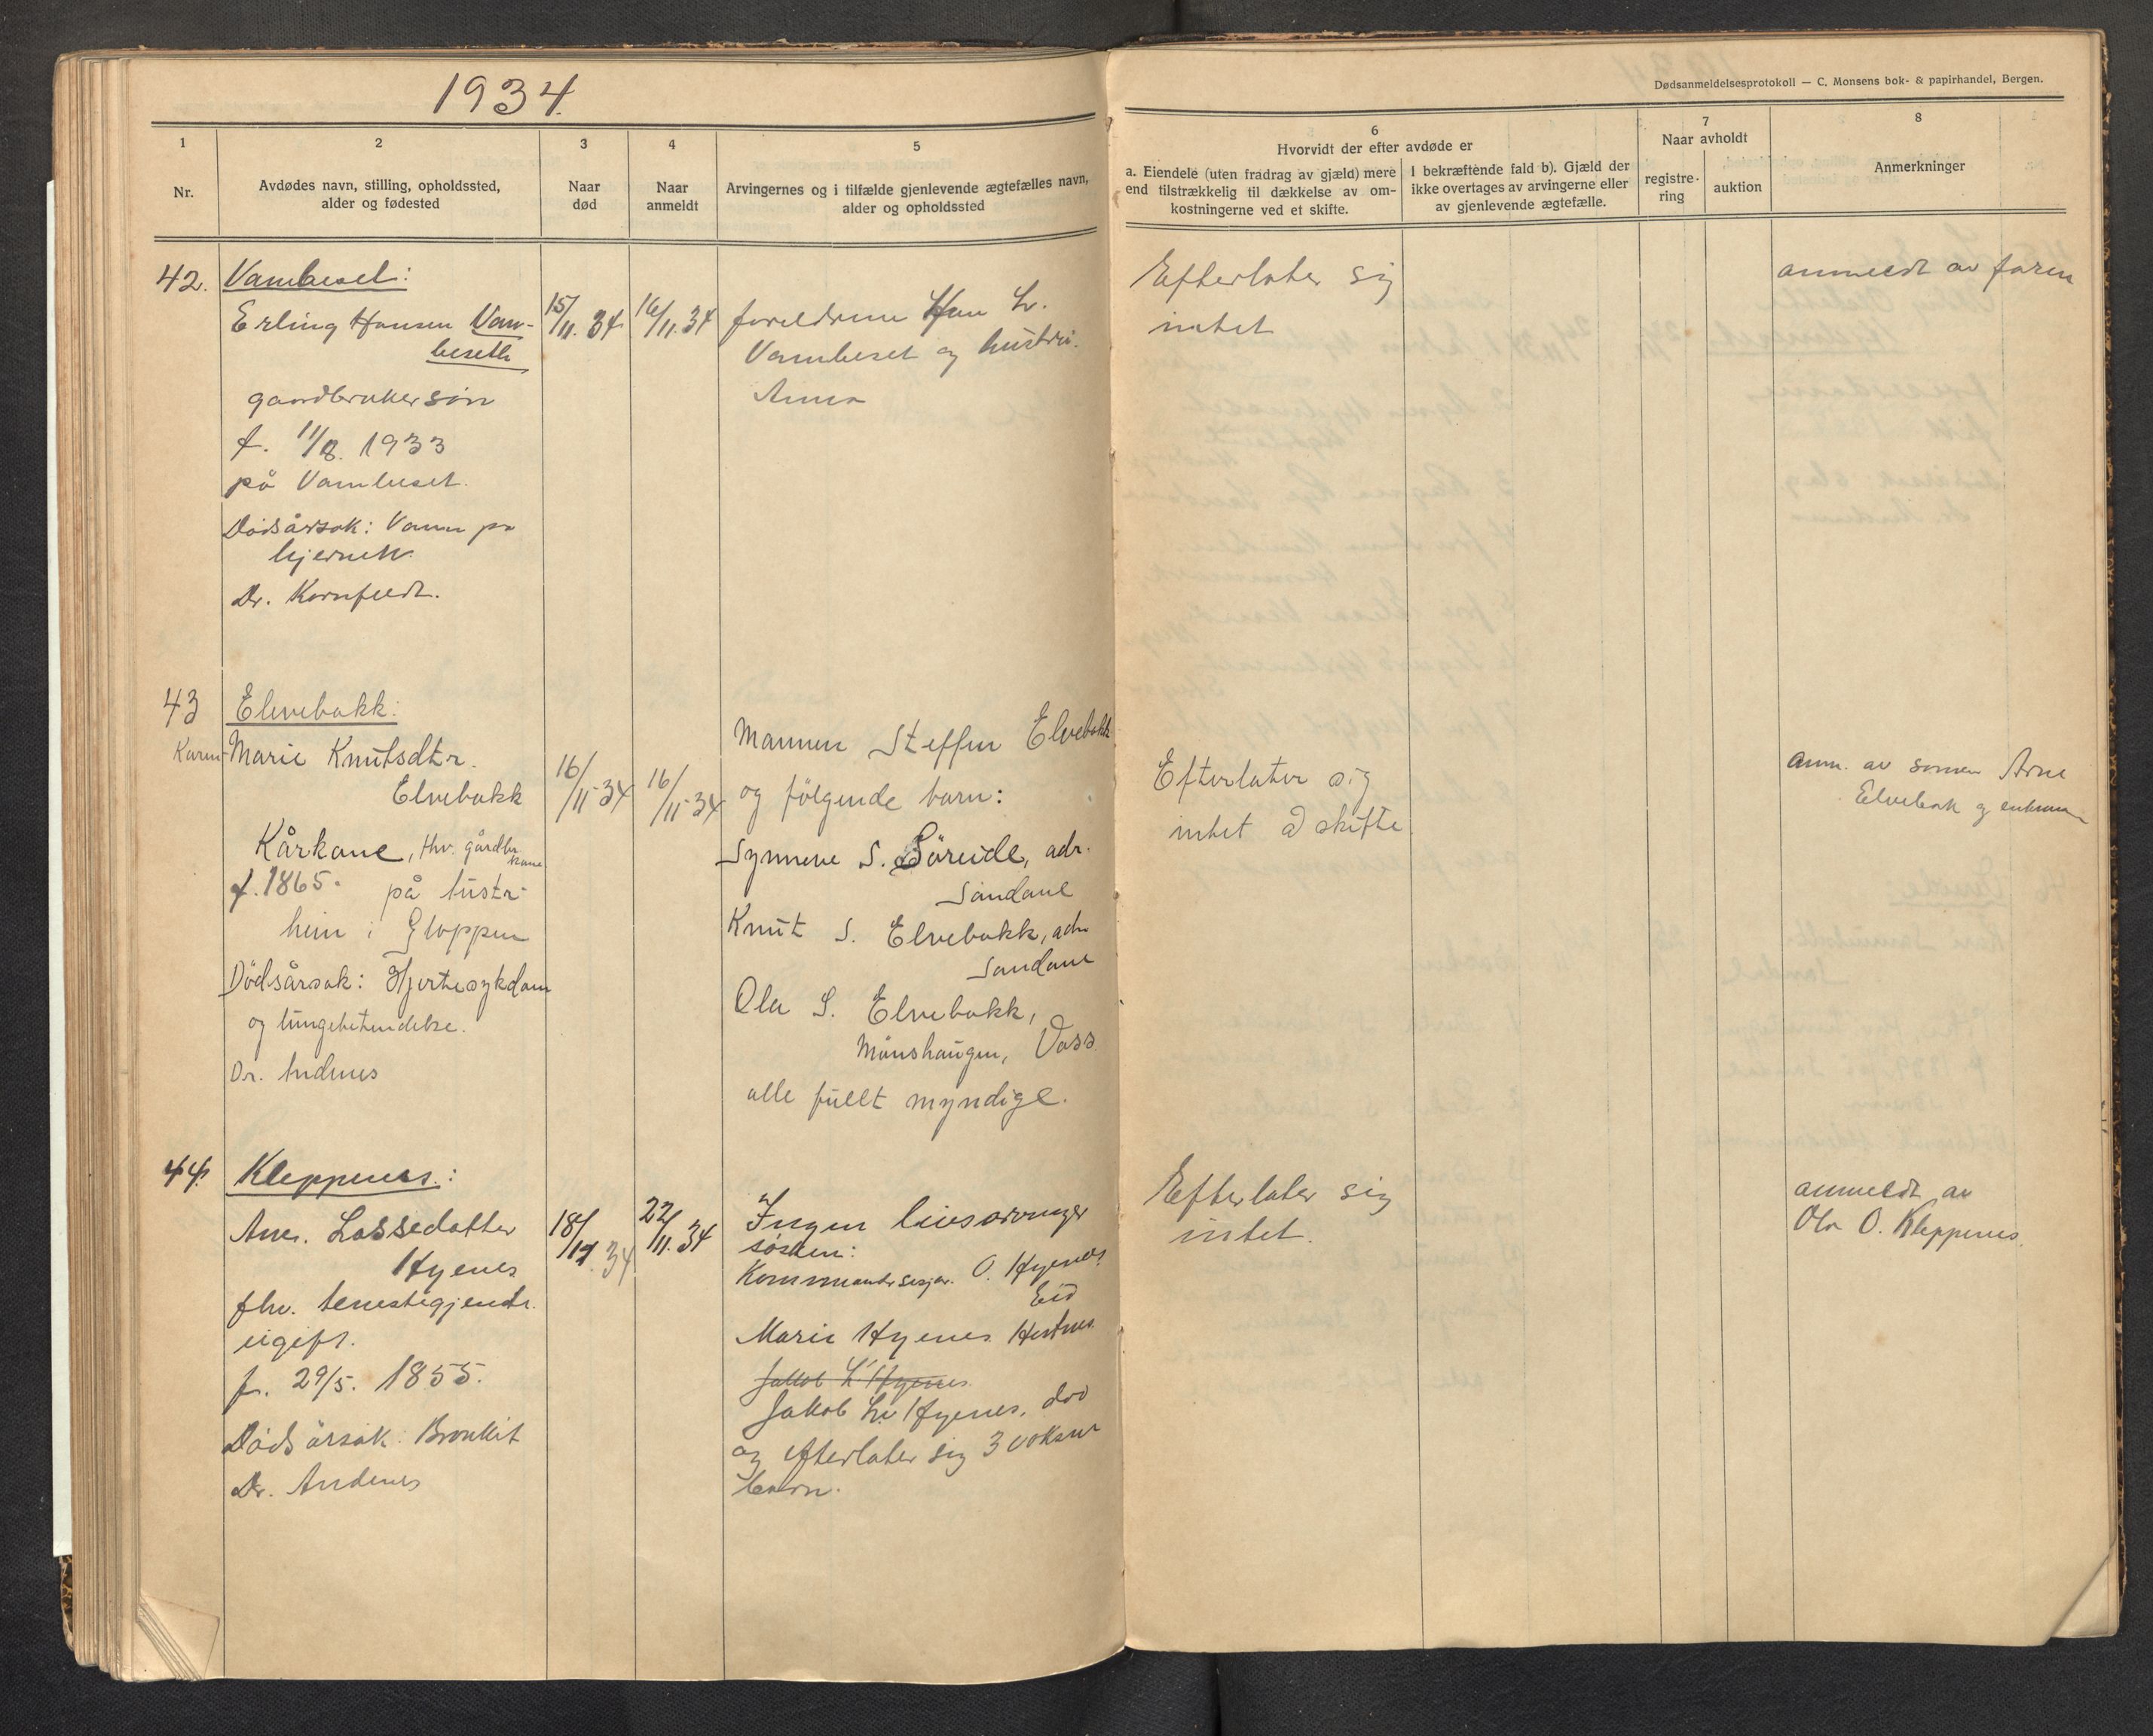 1934.
Dødsanmeldelsesprotokoll — C. Monsens bok- & papirhandel, Bergen.
1
Nr.
2
Avdødes navn, stilling, opholdssted,
alder og fødested
3
Naar
død
4
Naar
anmeldt
5
Arvingernes og i tilfælde gjenlevende ægtefælles navn,
alder og opholdssted
6
Hvorvidt der efter avdøde er
a. Eiendele (uten fradrag av gjæld) mere
end tilstrækkelig til dækkelse av om-
kostningerne ved et skifte.
I bekræftende fald b). Gjæld der
ikke overtages av arvingerne eller
av gjenlevende ægtefælle.
7
Naar avholdt
registre-
ring
auktion
8
Anmerkninger
42.
Vambeset:
Erling Hansen Vam-
beseth
gaardbruker søn
f. 11/8. 1933
på Vambeset.
Dødsårsak: Vann på
hjernen.
Dr. Kornfeldt.
15/11. 34
16/11. 34
foreldrene L.
Vambeset og hustru.
Anna
Efterlater sig
intet
anmeldt av faren
43
Elvebakk:
Karen Marie Knutsdtr.
Elvebakk
Kårkone, fhv. gårdbr.
kone
f. 1865. på
heim i Gloppen
Dödsårsak: Hjertesykdom
og lungebetendelse.
Dr. Andenes
16/11-34
16/11-34
Mannen Steffen Elvebakk
og følgende barn:
Synneve S. Söreide, adr.
Sandane
Knut S. Elvebakk, adr.
Sandane
Ola S. Elvebakk,
Mönshaugen, Voss.
alle fullt myndige.
Efterlater sig
intet å skifte.
anm. av sønnen Arne
Elvebakk og
44.
Kleppenes.:
Ane. Lassedatter
Hyenes
fhv. tenestegjente.
ugift.
f. 29/5. 1855.
Dødsårsak: Bronkit
Dr. Andenes
18/11. 34
22/11. 34
Ingen livsarvinger
søsken:
O. Hyenes
Eid
Marie Hyenes. Hestnes.
Jakob L. Hyenes
Jakob L. Hyenes, død
og efterlater sig 3 voksne
barn.
Efterlater sig
intet.
anmeldt av
Ola O. Kleppenes.